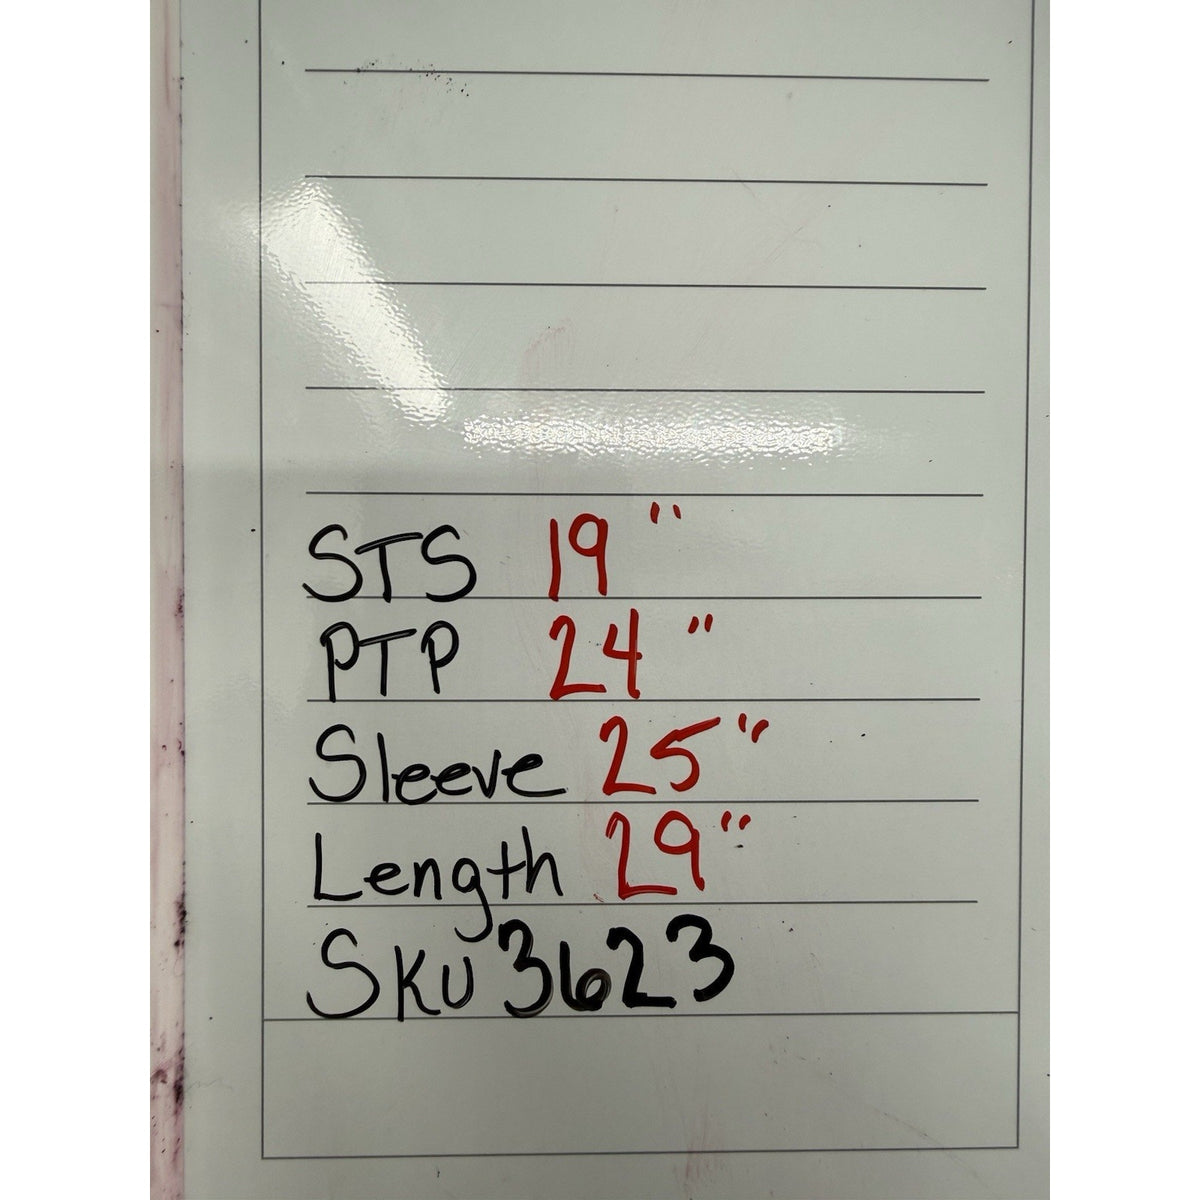 STS 19"
PTP 24"
Sleeve 25"
Length 29"
SKU 3623